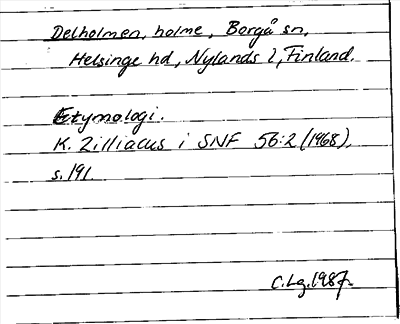 Delholmen, holme, Borgå sn,
Helsinge hd, Nylands l, Finland.
Etymologi.
K. Zilliacus i SNF 56:2 (1968),
s. 191.
C. Lg. 1987.